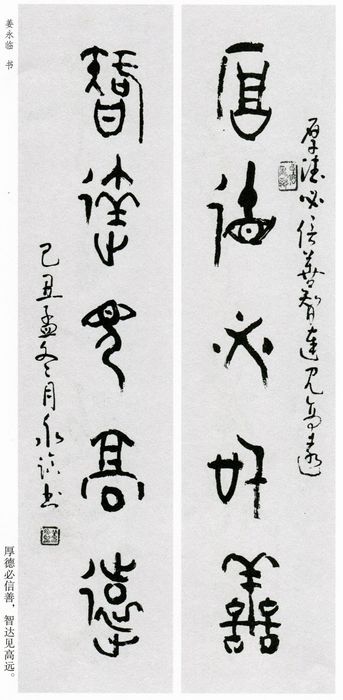 厚德必信善智達見高遠
厚德必信善
智達見高遠
己丑孟冬月永临书
姜永临 书
厚德必信善，智达见高远。